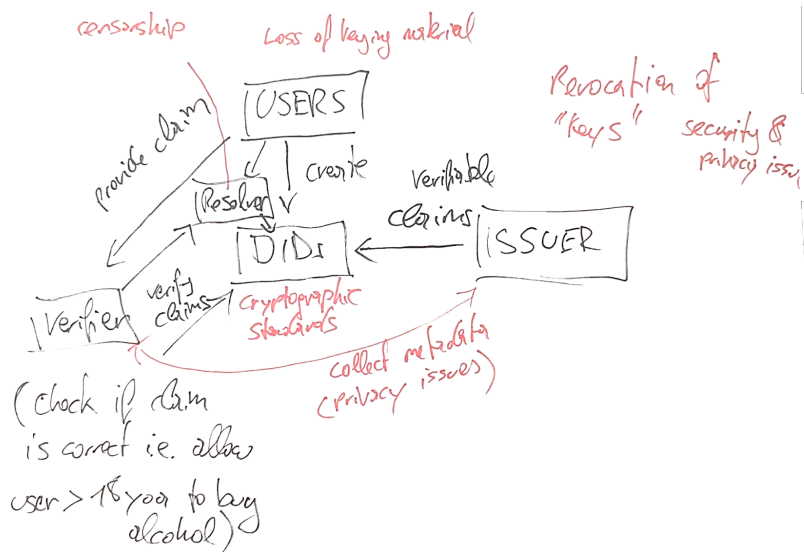 censorship
Loss of keying material
Revocation of
"Keys"
security &
privacy issu
USERS
provide claim
create
Resolver
verifiable
claims
DIDs
ISSUER
Verifier
verify
claims
cryptographic
standards
collect metadata
(privacy issues)
(check if claim
is correct i.e. allow
user > 18 year to buy
alcohol)